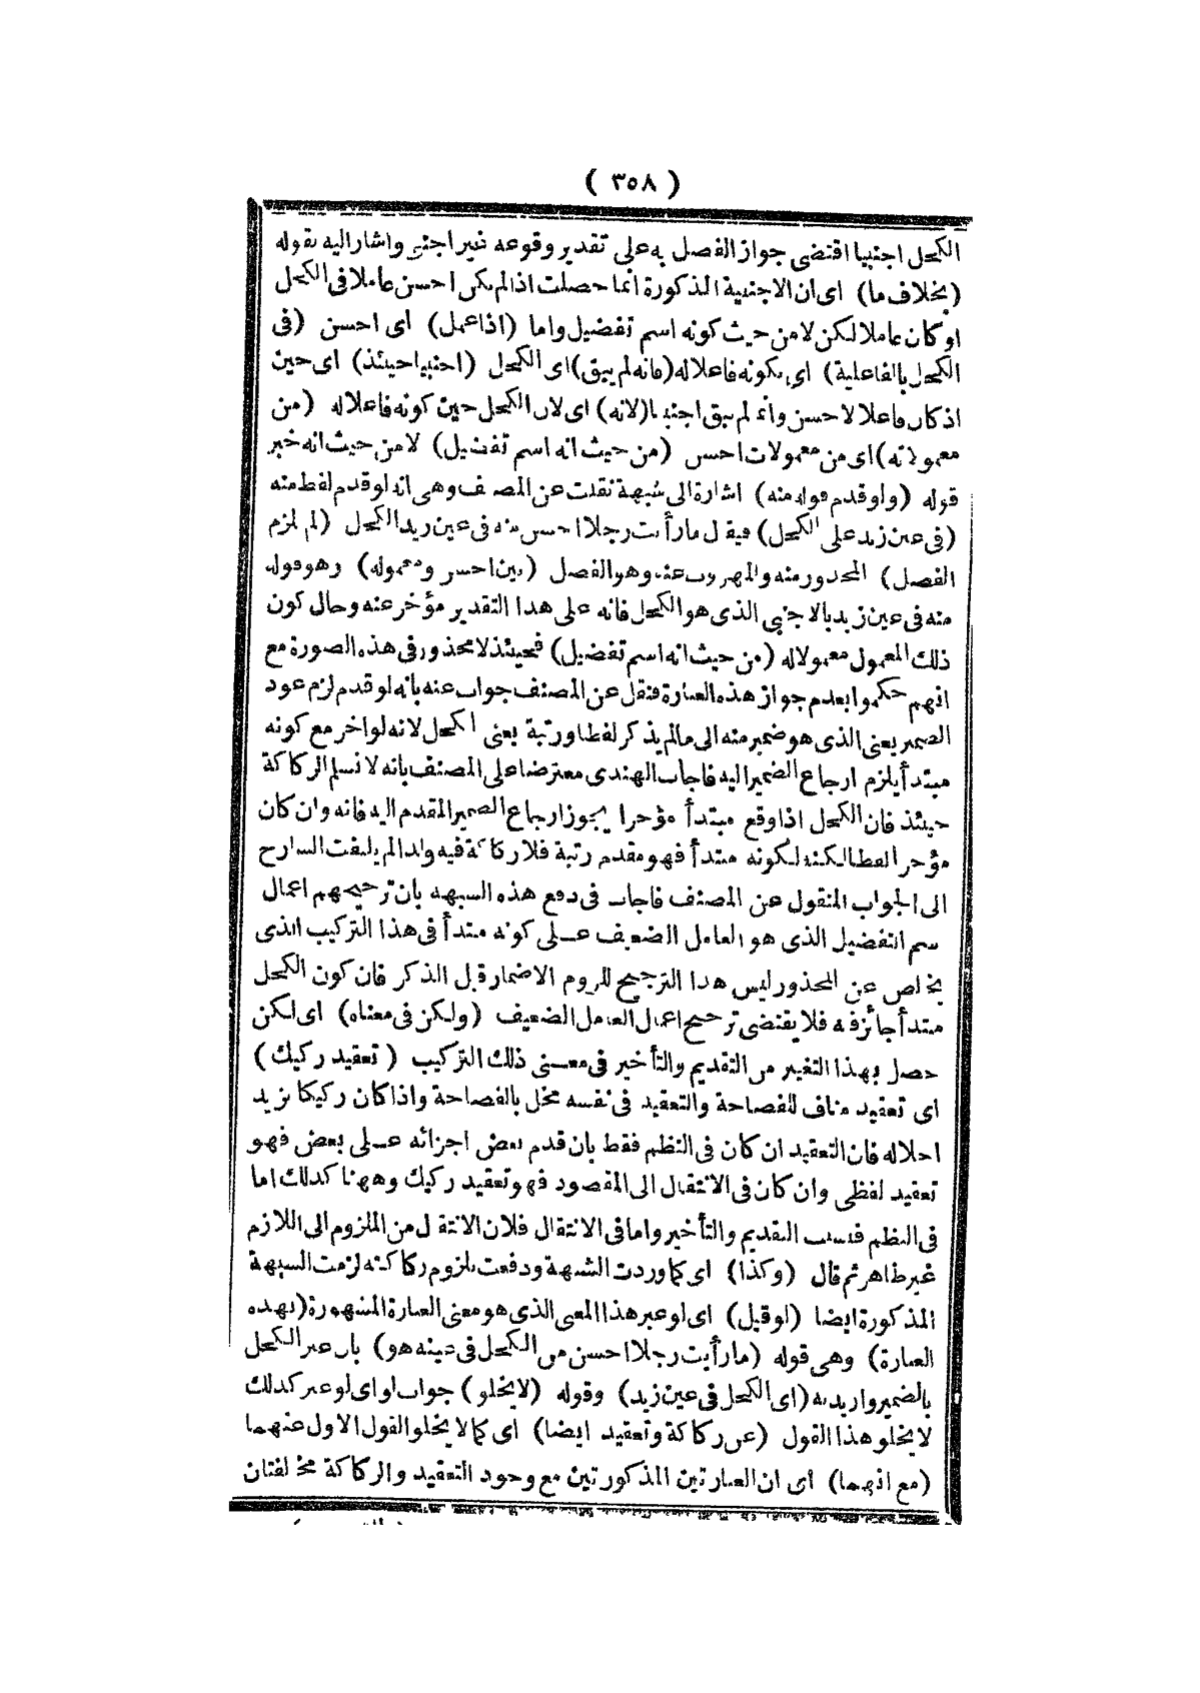 ( ٣٥٨ )
الكحل اجنبيا اقتضى جواز الفصل به على تقدير وقوعه غير اجنبي واشار اليه بقوله
(بخلاف ما) اى ان الاجنبية المذكورة انما حصلت اذا لم يكن احسن عاملا فى الكحل
او كان عاملا لكن لا من حيث كونه اسم تفضيل واما (اذا عمل) اى احسن (فى
الكحل بالفاعلية) اى بكونه فاعلا له (فانه لم يبق) اى الكحل (اجنبيا حينئذ) اى حين
اذ كان فاعلا لاحسن وانما لم يبق اجنبيا (لانه) اى لان الكحل حين كونه فاعلا له (من
معمولاته) اى من معمولات احسن (من حيث انه اسم تفضيل) لا من حيث انه خبر
قوله (ولو قدم قوله منه) اشارة الى شبهة نقلت عن المصنف وهى انه لو قدم لفظ منه
(فى عين زيد على الكحل) فيقال ما رأيت رجلا احسن منه فى عين زيد الكحل (لم يلزم
الفصل) المحذور منه والمهروب عنه وهو الفصل (بين احسن ومعموله) وهو قوله
منه فى عين زيد بالاجنبى الذى هو الكحل فانه على هذا التقدير مؤخر عنه وحال كون
ذلك المعمول معمولا له (من حيث انه اسم تفضيل) فحينئذ لا محذور فى هذه الصورة مع
انهم حكموا بعدم جواز هذه العبارة فنقل عن المصنف جواب عنه بانه لو قدم لزم عود
الضمير يعنى الذى هو ضمير منه الى ما لم يذكر لفظا ورتبة يعنى الكحل لانه لو اخر مع كونه
مبتدأ يلزم ارجاع الضمير اليه فاجاب الهندى معترضا على المصنف بانه لا نسلم الركاكة
حينئذ فان الكحل اذا وقع مبتدأ مؤخرا يجوز ارجاع الضمير المقدم اليه فانه وان كان
مؤخر الفظا لكنه لكونه مبتدأ فهو مقدم رتبة فلا ركاكة فيه ولذا لم يلتفت الشارح
الى الجواب المنقول عن المصنف فاجاب فى دفع هذه الشبهه بان ترجيحهم اعمال
سم التفضيل الذى هو العامل الضعيف عـلى كونه مبتدأ فى هذا التركيب الذى
يخلص عن المحذور ليس هذا الترجيح للزوم الاضمار قبل الذكر فان كون الكحل
مبتدأ جائز فيه فلا يقتضى ترجيح اعمال العامل الضعيف (ولكن فى معناه) اى لكن
حصل بهذا التغيير من التقديم والتأخير فى معـنى ذلك التركيب (تعقيد ركيك)
اى تعقيد مناف للفصاحة والتعقيد فى نفسه مخل بالفصاحة واذا كان ركيكا يزيد
اخلاله فان التعقيد ان كان فى النظم فقط بان قدم بعض اجزائه عـلى بعض فهو
تعقيد لفظى وان كان فى الانتقال الى المقصود فهو تعقيد ركيك وههنا كذلك اما
فى النظم فبسبب التقديم والتأخير واما فى الانتقال فلان الانتقال من الملزوم الى اللازم
غير ظاهر ثم قال (وكذا) اى كما وردت الشبهة ودفعت بلزوم ركاكته لزمت الشبهة
المذكورة ايضا (لو قيل) اى لو عبر هذا المعنى الذى هو معنى العبارة المشهورة (بهذه
العبارة) وهى قوله (ما رأيت رجلا احسن من الكحل فى عينه هو) بان عبر الكحل
بالضمير واريد به (اى الكحل فى عين زيد) وقوله (لا يخلو) جواب لو اى لو عبر كذلك
لا يخلو هذا القول (عن ركاكة وتعقيد ايضا) اى كما لا يخلو القول الاول عنهما
(مع انهما) اى ان العبارتين المذكورتين مع وجود التعقيد والركاكة مختلفتان